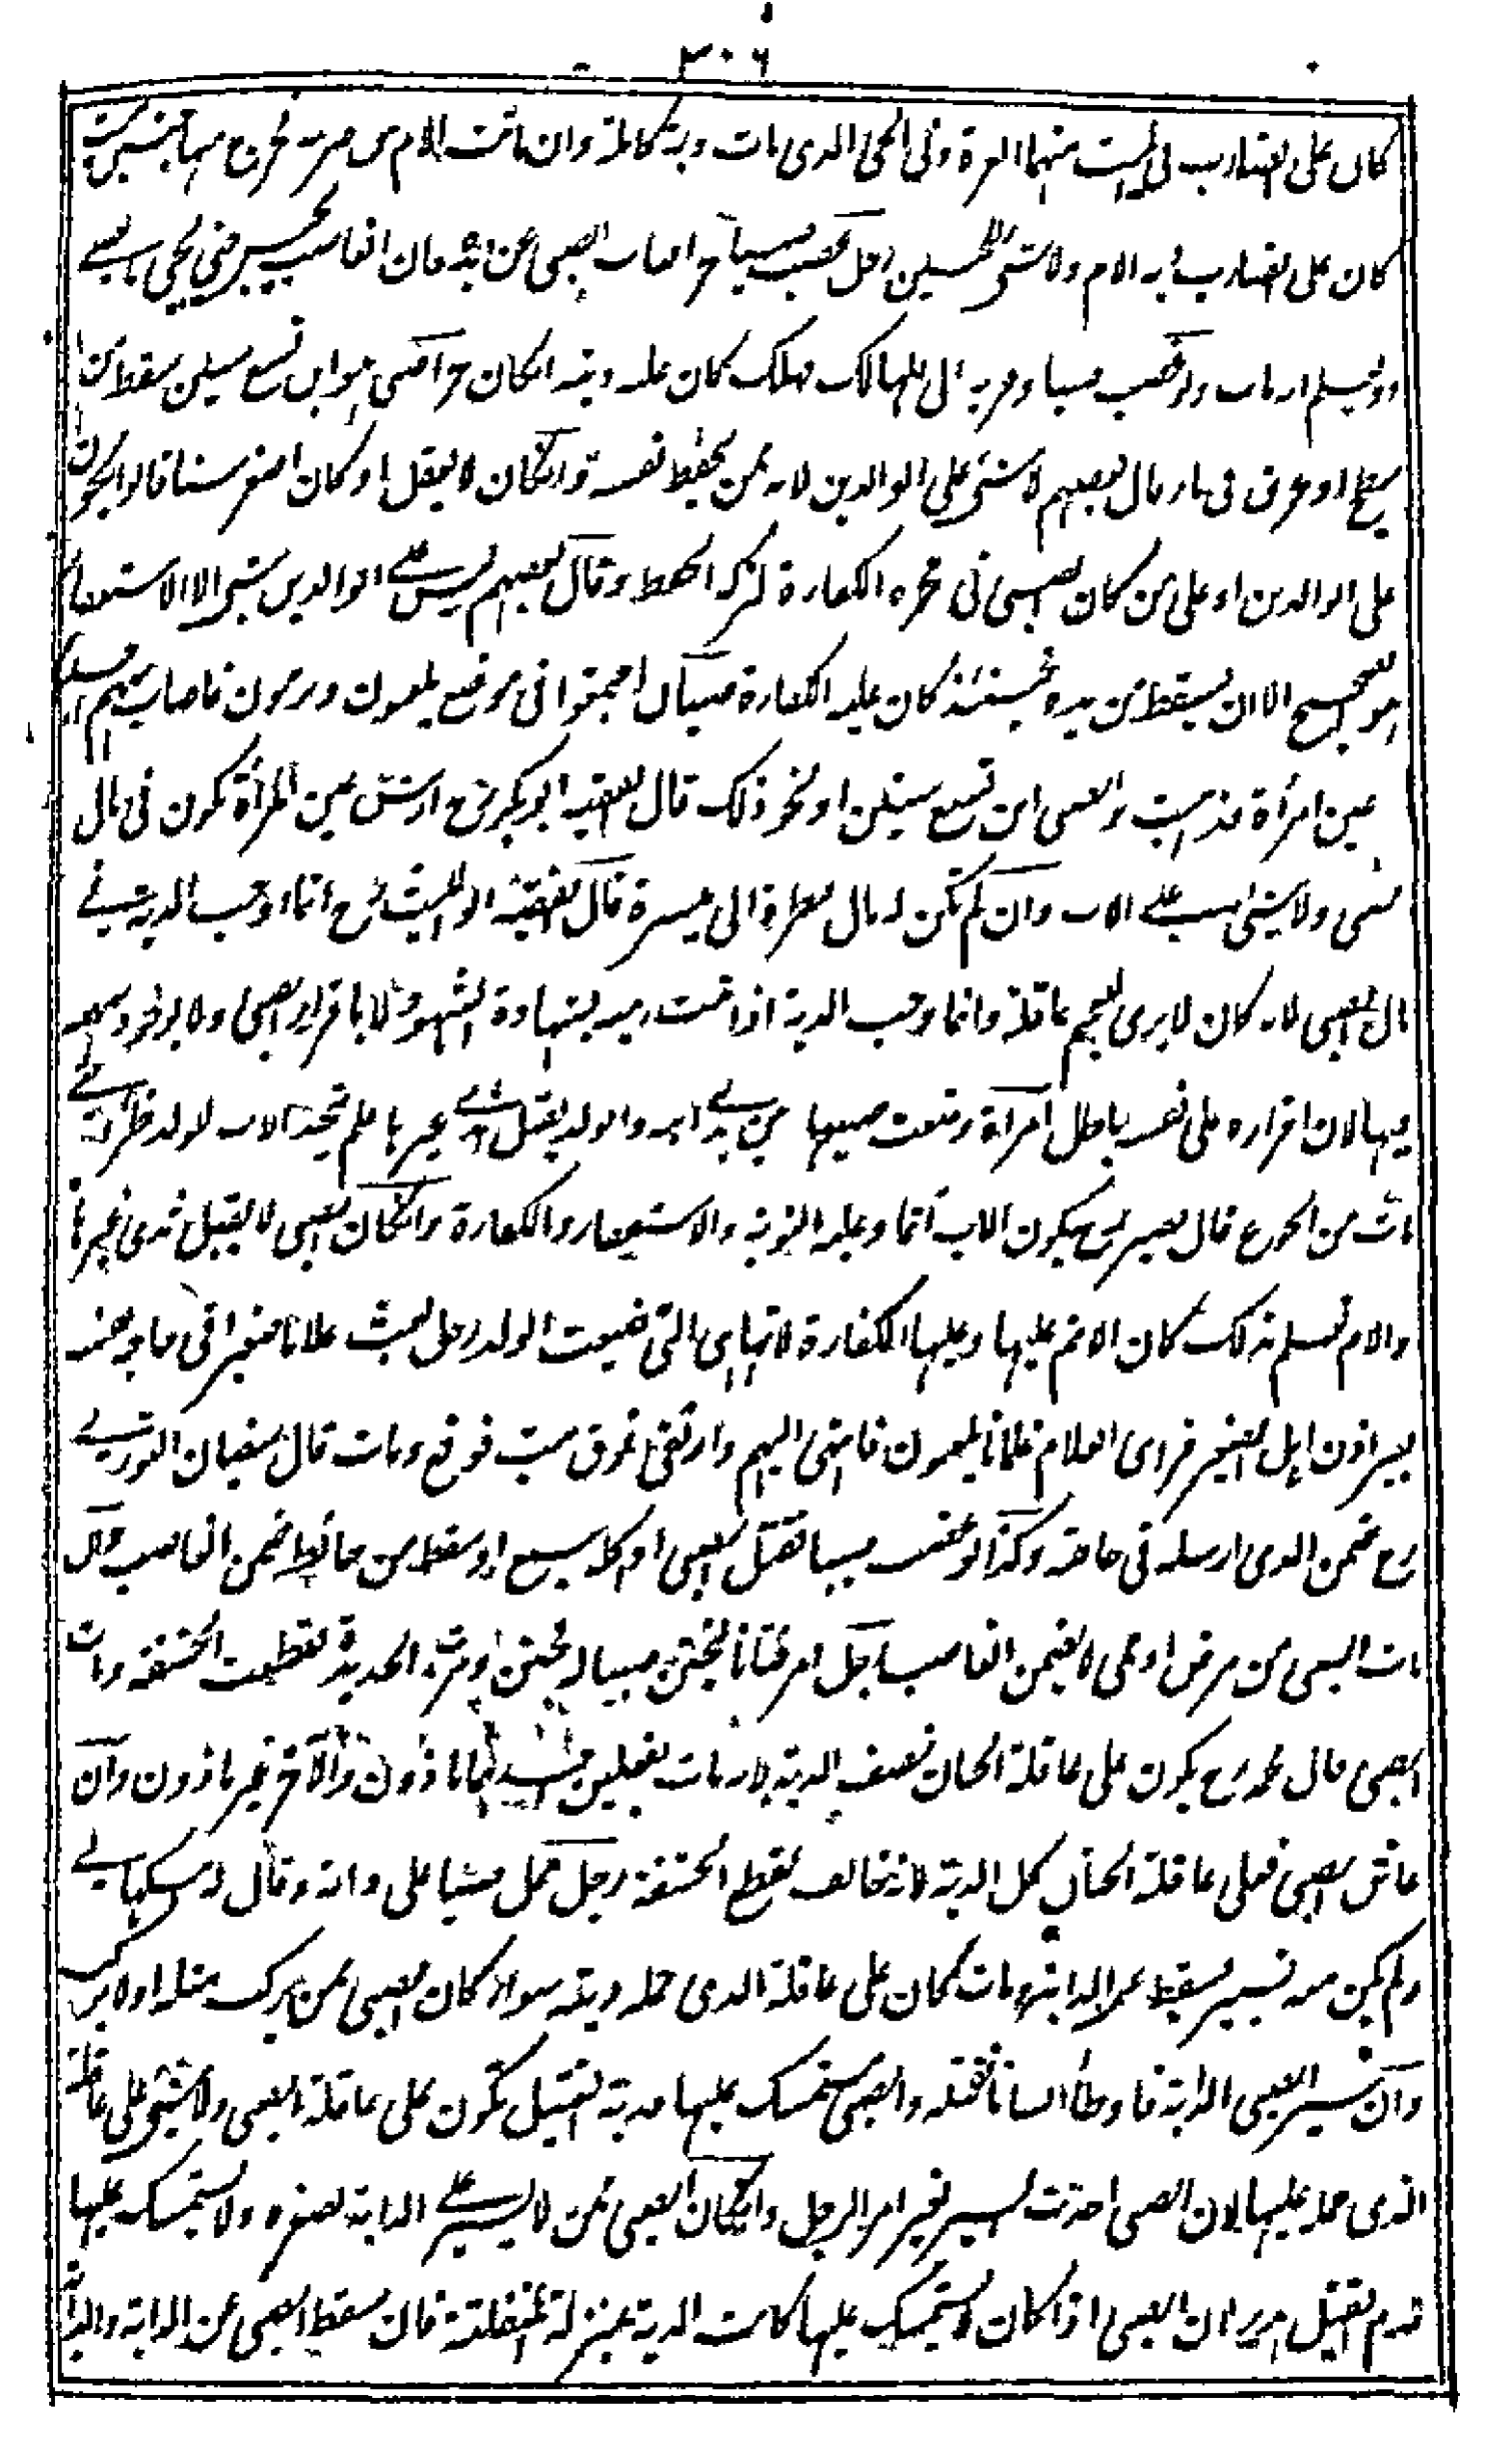 ٣٠٦
كان على الضارب في الميت منهما الغرة وفي الحي الذي مات دية كاملة وان ماتت الام من ضربه فخرج منها جنين ميت
كان على الضارب دية الام ولا شئ في الجنين رجل غصب صبيا حرا فغاب الصبي عن يده فان الغاصب يحبس حتى يجئ بالصبي
او يعلم انه مات ولو غصب صبيا وقربه الى المهالك فهلك كان عليه ديته ان كان حرا صبي هو ابن تسع سنين سقط من
سطح او غرق في ماء قال بعضهم لا شئ على الوالدين لانه ممن يحفظ نفسه وان كان لا يعقل او كان اصغر سنا قالوا يكون
على الوالدين او على من كان الصبي في حجره الكفارة لترك الحفظ وقال بعضهم ليس على الوالدين شئ الا الاستغفار
هو الصحيح الا ان يسقط من يده فحينئذ كان عليه الكفارة صبيان اجتمعوا في موضع يلعبون ويرمون فاصاب سهم احدهم
عين امرأة فذهبت والصبي ابن تسع سنين او نحو ذلك قال الفقيه ابو بكر رح ارش عين المرأة تكون في مال
الصبي ولا شئ يجب على الاب وان لم تكن له مال فنظرة الى ميسرة قال الفقيه ابو الليث رح انما اوجب الدية في
مال الصبي لانه كان لا يرى للعجم عاقلة وانما وجب الدية اذا ثبت رميه بشهادة الشهود لا باقرار الصبي ولا بوجود سهمه
فيها لان اقراره على نفسه باطل امرأة وقعت صبيها من يد ابيه والولد يقبل ثدي غيرها فلم تتخذ الاب للولد ظئرا حتى
مات من الجوع قال نصير رح يكون الاب آثما وعليه التوبة والاستغفار والكفارة وان كان الصبي لا يقبل ثدي غيرها
والام تعلم بذلك كان الاثم عليها وعليها الكفارة لانها هي التي ضيعت الولد رجل بعث غلاما صغيرا في حاجة نفسه
بغير اذن اهل الصغير فرأى الغلام غلمانا يلعبون فانتهى اليهم وارتقى فوق بيت فوقع ومات قال سفيان الثوري
رح ضمن الذي ارسله في حاجته وكذا لو غصب صبيا فقتل الصبي او اكله سبع او سقط من حائط ضمن الغاصب وان
مات الصبي من مرض او حمى لا يضمن الغاصب رجل امر ختانا ليختن صبيا له فختن وجرت الحديدة فقطعت الحشفة ومات
الصبي قال محمد رح يكون على عاقلة الختان نصف الدية لانه مات بفعلين احدهما ماذون والآخر غير ماذون وان
عاش الصبي فعلى عاقلة الختان كل الدية لانه خالف بقطع الحشفة رجل حمل صبيا على دابة وقال له امسكها لي
ولم يكن منه تسيير فسقط عن الدابة ومات كان على عاقلة الذي حمله ديته سواء كان الصبي ممن يركب مثله او لا يركب
وان سير الصبي الدابة فاوطأ انسانا فقتله والصبي يستمسك عليها فدية القتيل تكون على عاقلة الصبي ولا شئ على عاقلة
الذي حمله عليها لان الصبي احدث السير بغير امر الرجل وان كان الصبي ممن لا يسير على الدابة لصغره ولا يستمسك عليها
فدم القتيل هدر لان الصبي اذا كان لا يستمسك عليها كانت الدية بمنزلة المنفلتة فان سقط الصبي عن الدابة والدابة